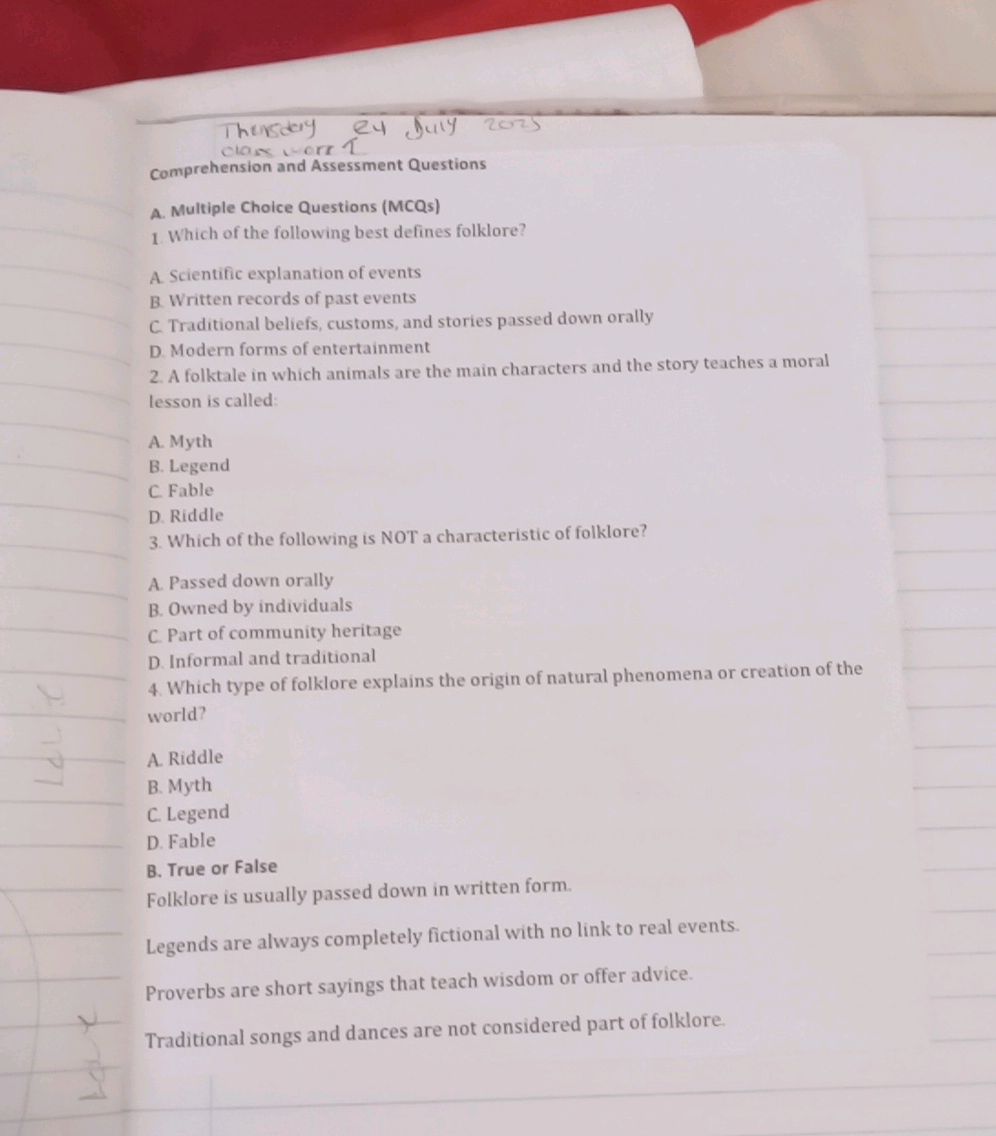 Thursday 24 July 2025
Class work 1
Comprehension and Assessment Questions
A. Multiple Choice Questions (MCQs)
1. Which of the following best defines folklore?
A. Scientific explanation of events
B. Written records of past events
C. Traditional beliefs, customs, and stories passed down orally
D. Modern forms of entertainment
2. A folktale in which animals are the main characters and the story teaches a moral
lesson is called:
A. Myth
B. Legend
C. Fable
D. Riddle
3. Which of the following is NOT a characteristic of folklore?
A. Passed down orally
B. Owned by individuals
C. Part of community heritage
D. Informal and traditional
4. Which type of folklore explains the origin of natural phenomena or creation of the
world?
A. Riddle
B. Myth
C. Legend
D. Fable
B. True or False
Folklore is usually passed down in written form.
Legends are always completely fictional with no link to real events.
Proverbs are short sayings that teach wisdom or offer advice.
Traditional songs and dances are not considered part of folklore.